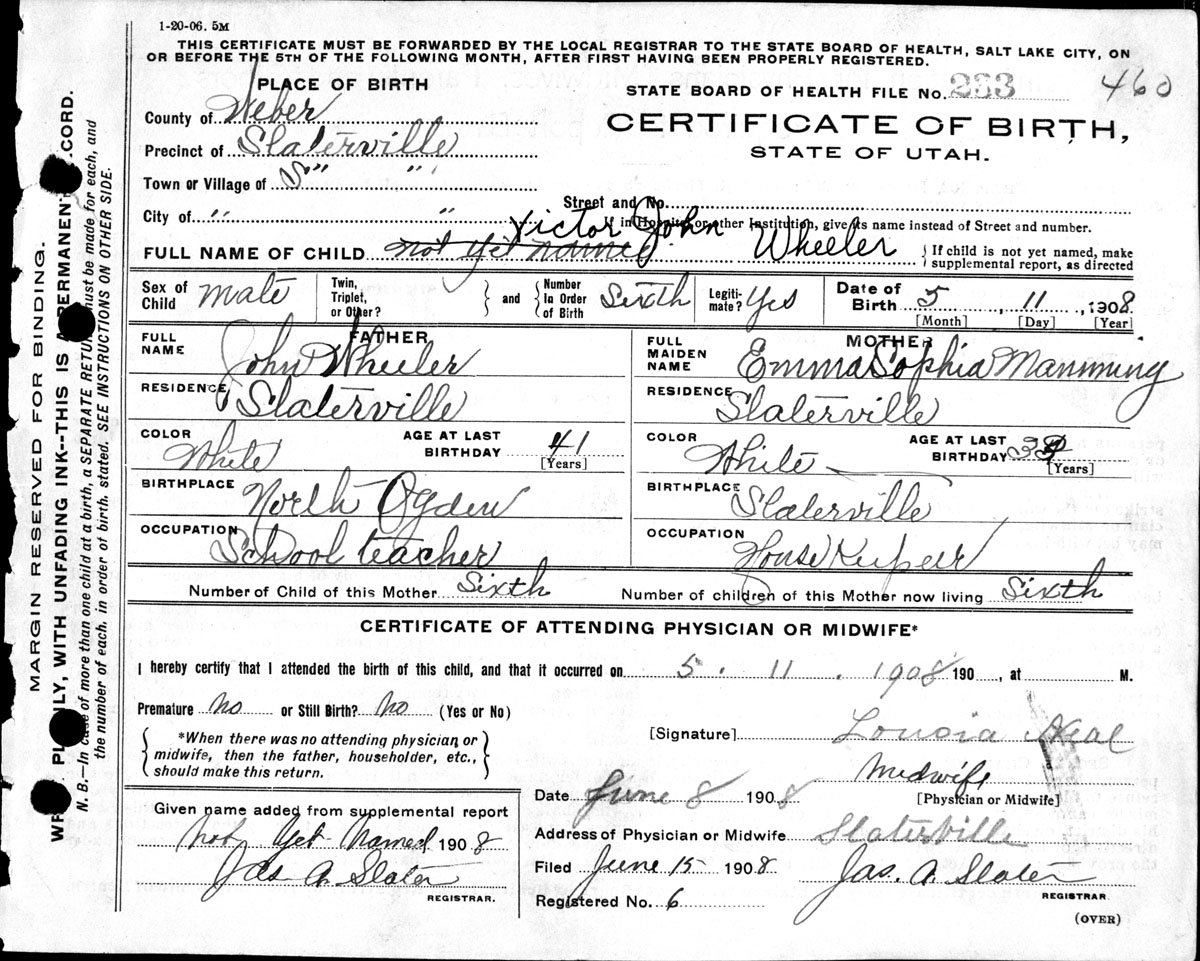 1-20-06. 5M
THIS CERTIFICATE MUST BE FORWARDED BY THE LOCAL REGISTRAR TO THE STATE BOARD OF HEALTH, SALT LAKE CITY, ON
OR BEFORE THE 5TH OF THE FOLLOWING MONTH, AFTER FIRST HAVING BEEN PROPERLY REGISTERED.
PLACE OF BIRTH
STATE BOARD OF HEALTH FILE No. 233 460
County of Weber
CERTIFICATE OF BIRTH,
Precinct of Slaterville
STATE OF UTAH.
Town or Village of S " "
Street and No.
City of " "
If in Hospital or other Institution, give its name instead of Street and number.
Victor John
FULL NAME OF CHILD not yet named Wheeler { If child is not yet named, make supplemental report, as directed
Sex of Child Male Twin, Triplet, or Other? } and { Number In Order of Birth Sixth Legiti-mate? Yes Date of Birth 5, 11, 1908
[Month] [Day] [Year]
FATHER
FULL NAME John Wheeler
RESIDENCE Slaterville
COLOR White AGE AT LAST BIRTHDAY 41 [Years]
BIRTHPLACE North Ogden
OCCUPATION School teacher
MOTHER
FULL MAIDEN NAME Emma Sophia Mannning
RESIDENCE Slaterville
COLOR White AGE AT LAST BIRTHDAY [Years]
BIRTHPLACE Slaterville
OCCUPATION House Keeper
Number of Child of this Mother Sixth Number of children of this Mother now living Sixth
CERTIFICATE OF ATTENDING PHYSICIAN OR MIDWIFE*
I hereby certify that I attended the birth of this child, and that it occurred on 5. 11. 1908 190 , at M.
Premature No or Still Birth? No (Yes or No)
*When there was no attending physician or
midwife, then the father, householder, etc.,
should make this return.
[Signature] Loucia Neal
Midwife
[Physician or Midwife]
Date June 8 1908
Address of Physician or Midwife Slaterville
Filed June 15 1908 Jas. A. Slater
REGISTRAR.
Registered No. 6
(OVER)
Given name added from supplemental report
Not Yet Named 1908
Jas A. Slater
REGISTRAR.
MARGIN RESERVED FOR BINDING.
PLAINLY, WITH UNFADING INK--THIS IS A PERMANENT RECORD.
N. B.—In case of more than one child at a birth, a SEPARATE RETURN must be made for each, and
the number of each, in order of birth, stated. SEE INSTRUCTIONS ON OTHER SIDE.